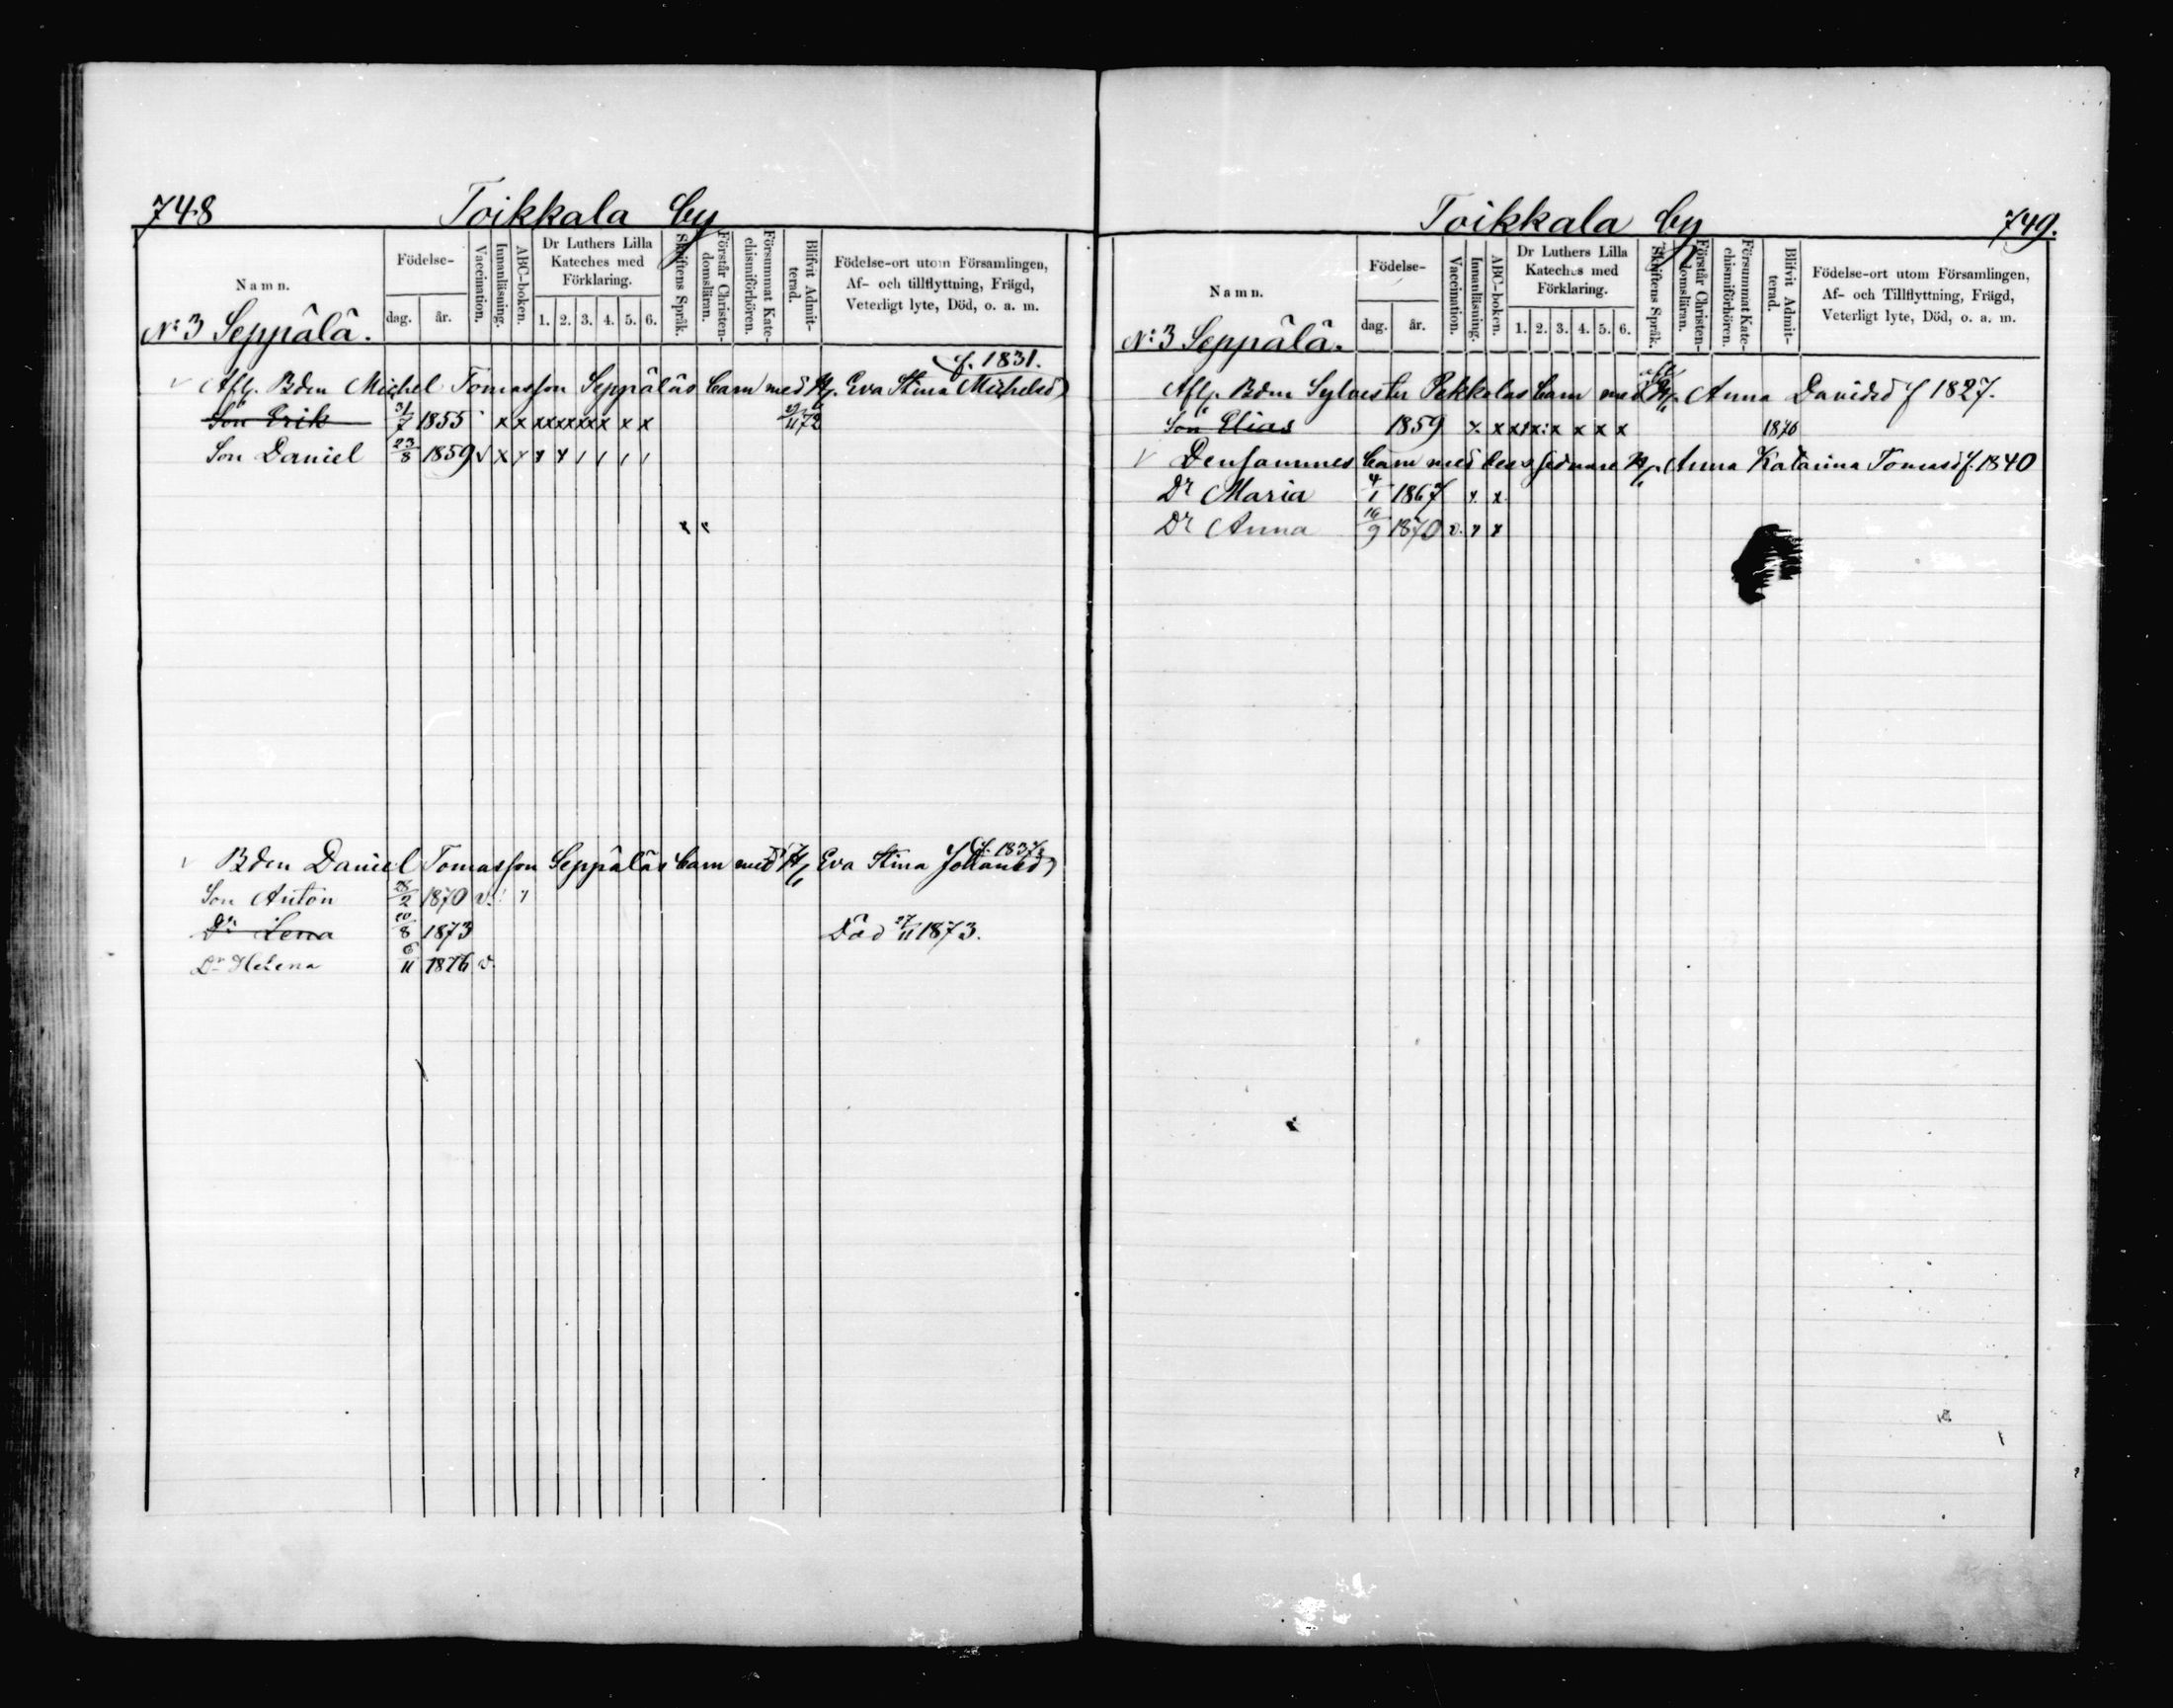 748
Toikkala by
Namn.
Födelse-
dag.
år.
Vaccination.
Innanläsning.
ABC-boken.
Dr Luthers Lilla
Kateches med
Förklaring.
1. 2. 3. 4. 5. 6.
Skriftens Språk.
Förstår Christen-
domsläran.
Försummat Kate-
chismiförhören.
Blifvit Admit-
terad.
Födelse-ort utom Församlingen,
Af- och tillflyttning, Frägd,
Veterligt lyte, Död, o. a. m.
N:3 Seppälä.
f. 1831.
Afl. Bdn Michel Tomasson Seppäläs barn med H. Eva Stina Michelsd
Son Erik 31/7 1855 x x x x x x x x x x 72
Son Daniel 23/8 1859 v x x x x / / / /
x x
f. 1837
Bden Daniel Tomasson Seppäläs barn med H. Eva Stina Johansd
Son Anton 1870 v.
Dr Lena 20/8 1873 Död 27/11 1873.
Dr Helena 6/11 1876 v.
Toikkala by
749.
Namn.
Födelse-
dag.
år.
Vaccination.
Innanläsning.
ABC-boken.
Dr Luthers Lilla
Kateches med
Förklaring.
1. 2. 3. 4. 5. 6.
Skriftens Språk.
Förstår Christen-
domsläran.
Försummat Kate-
chismiförhören.
Blifvit Admit-
terad.
Födelse-ort utom Församlingen,
Af- och Tillflyttning, Frägd,
Veterligt lyte, Död, o. a. m.
N:3 Seppälä.
Afl. Bdn Sylvester Pekkolas barn med afl H. Anna Davidsd f 1827.
Son Elias 1859 x x x x x x x x 1876
Densammes barn med dess sednare H. Anna Katarina Tomasd f. 1840
Dr Maria 4/1 1867 x x
Dr Anna 16/9 1870 v. x x